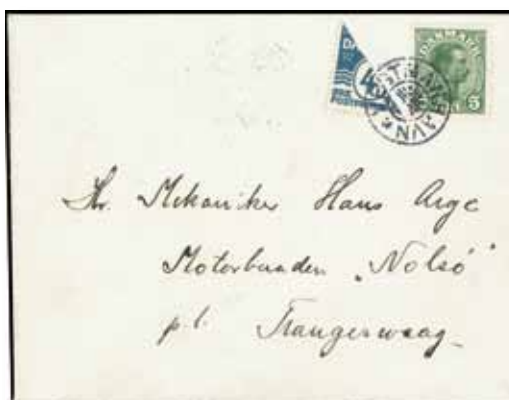 DA
4
DANMARK
5
Hr. Mekaniker Hans Arge
Motorbaaden „Nolsö"
p.t. Trangisvaag